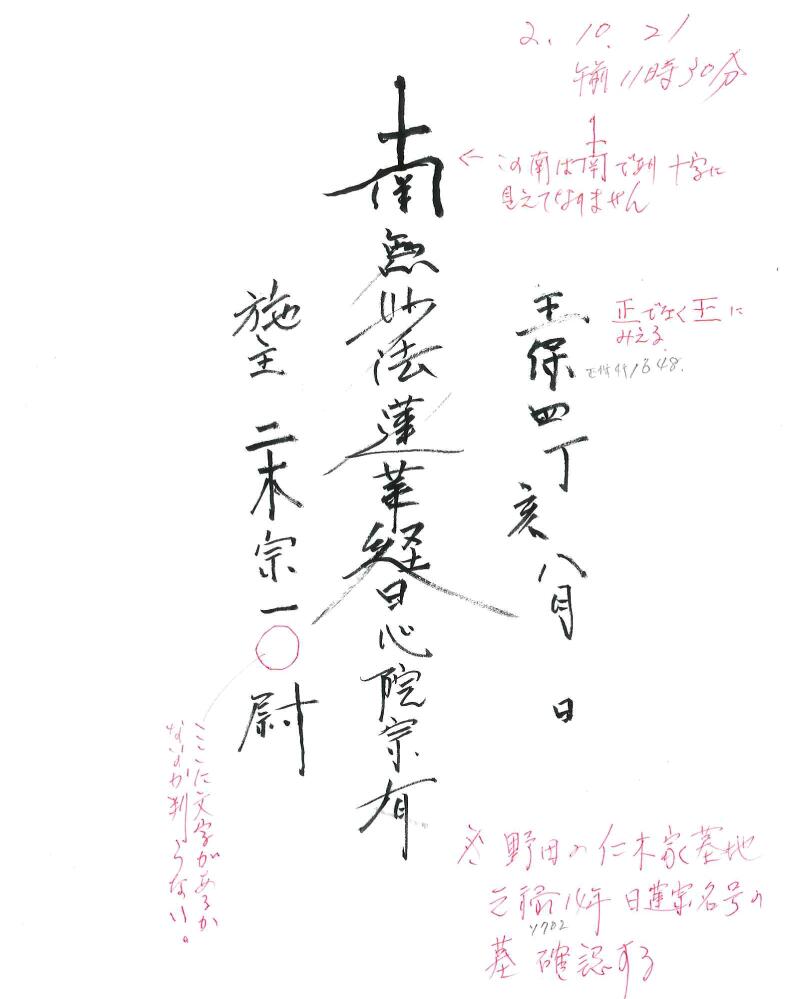 2. 10. 21
午前11時30分
南無妙法蓮華経日心院宗有
← この南は南であり 十字に
見えてなりません
王保四丁亥八月 日
正でなく王に
みえる
正保4年1648.
施主 二木宗一〇尉
ここに文字があるか
ないか判らない。
野田の仁木家墓地
元禄14年 日蓮宗名号の
1702
墓 確認する